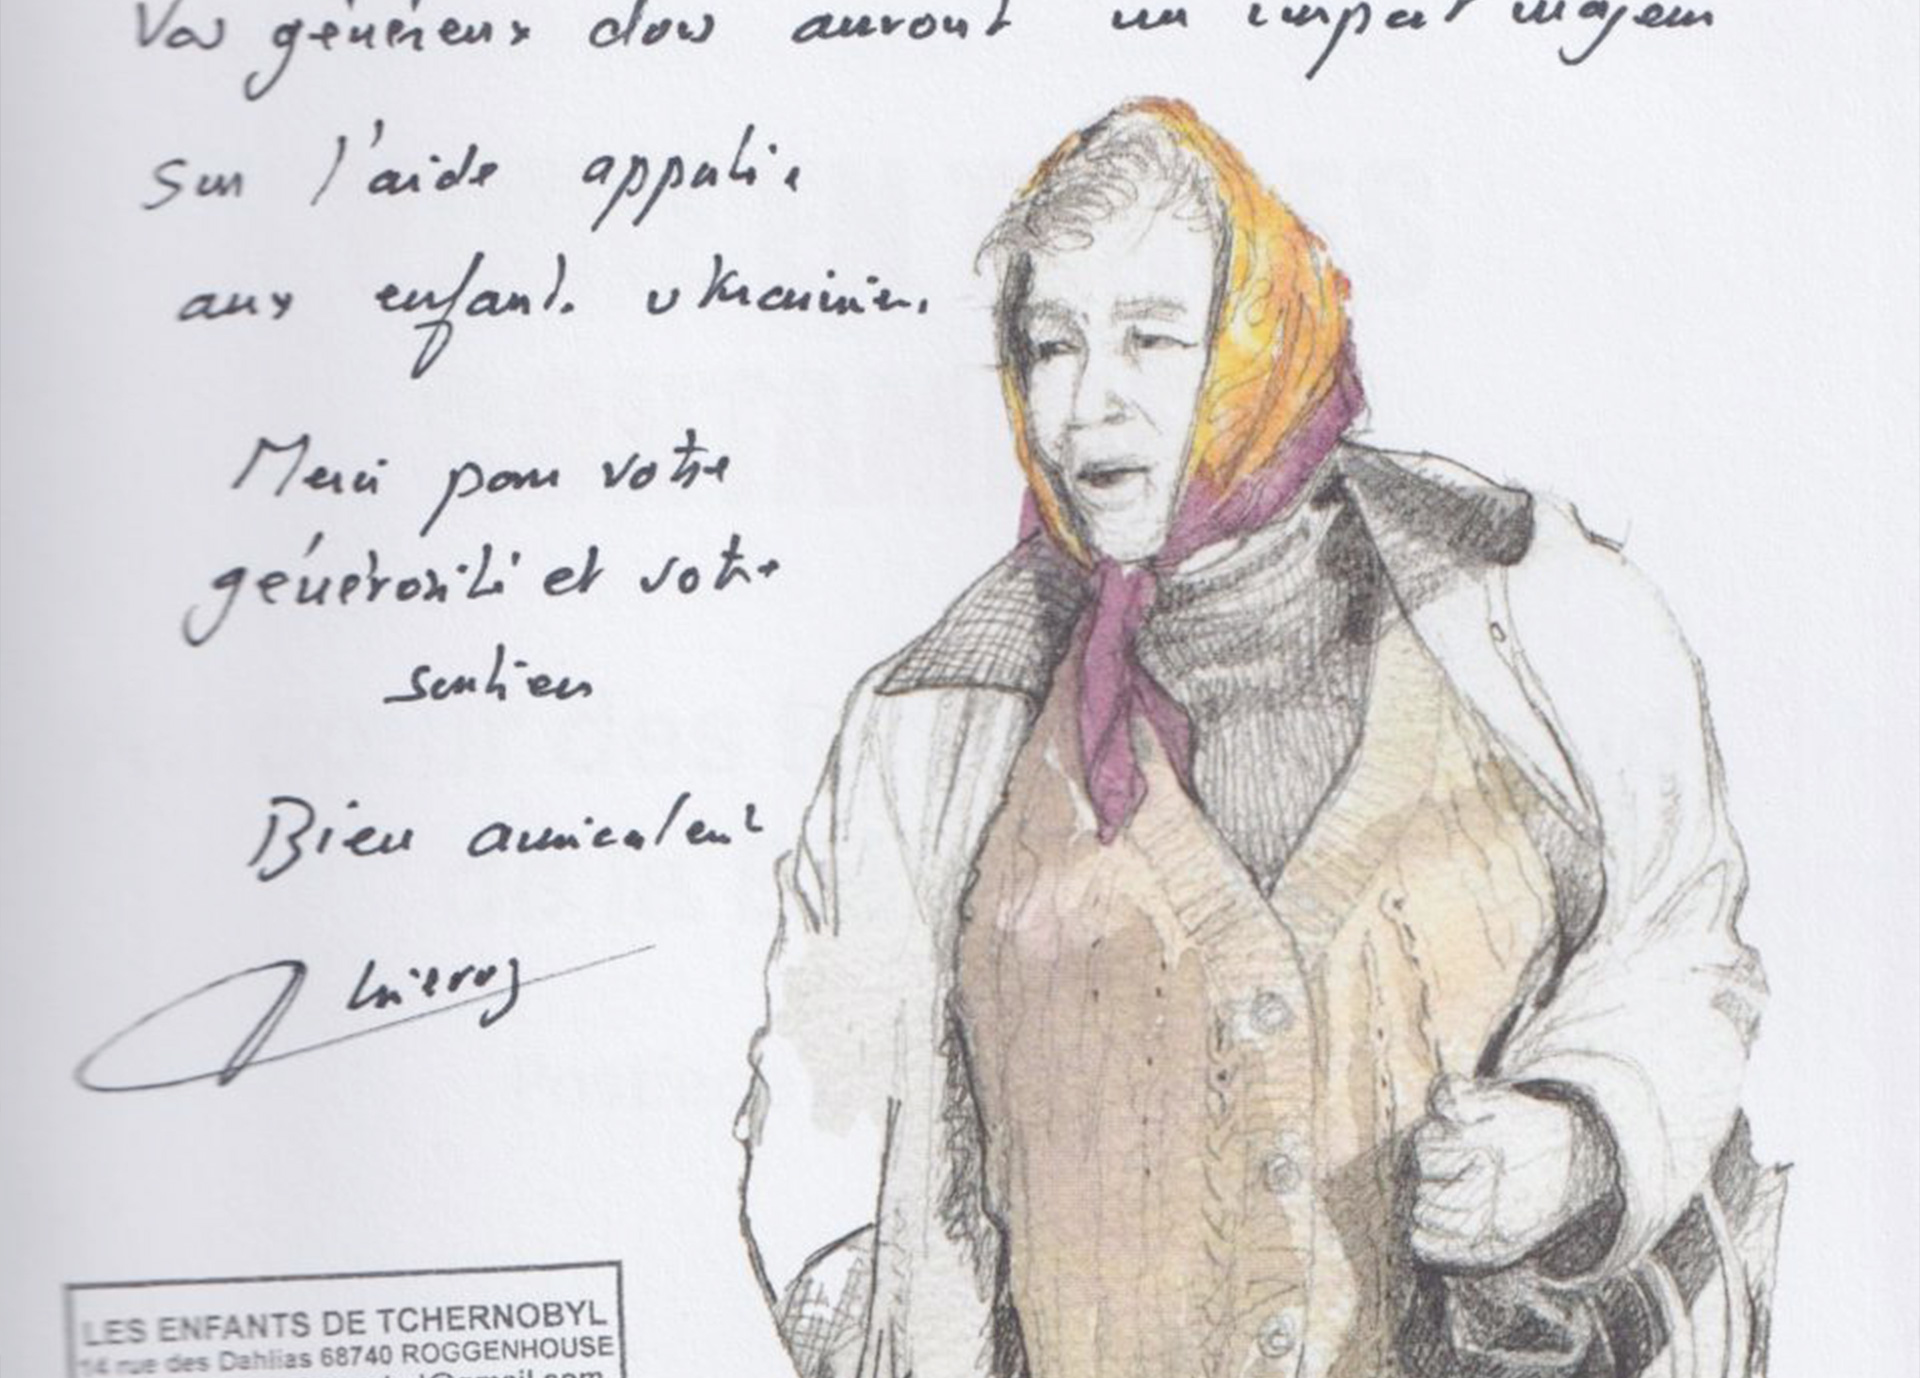 Vos généreux dons auront un impact majeur
sur l'aide apportée
aux enfants ukrainiens.
Merci pour votre
générosité et votre
soutien
Bien amicalement
Thierry
LES ENFANTS DE TCHERNOBYL
14 rue des Dahlias 68740 ROGGENHOUSE
@gmail.com